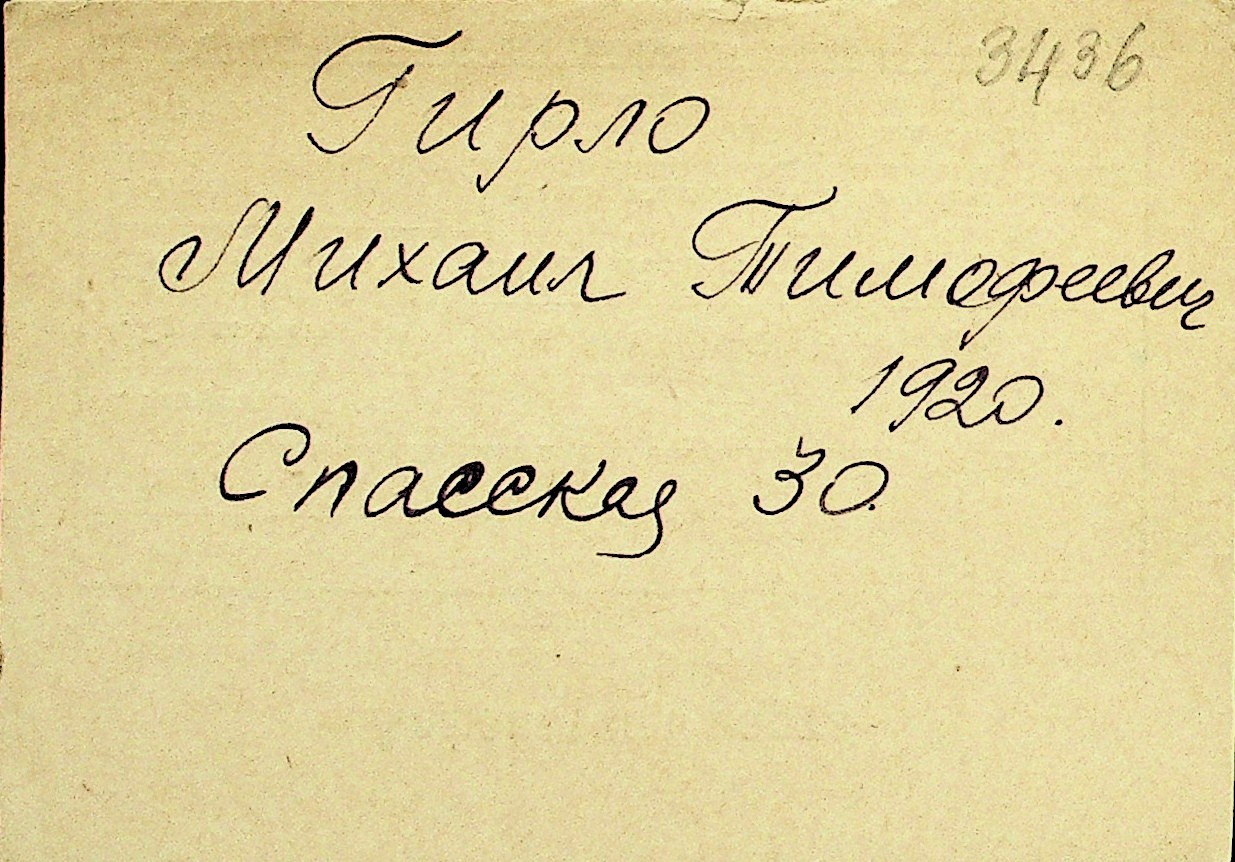 3436
Гирло
Михаил Тимофеевич
1920.
Спасская 30.